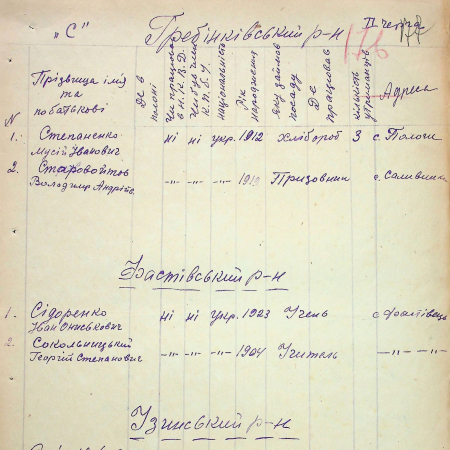 „С" Гребінківський р-н II черга
176 177
N Прізвища ім'я та побатькові Де в полоні Чи працював в Н.К.В.Д. Чи був членом К.П.б.У. національність Рік народження яку займав посаду Де працював кількість утриманців Адреса
1. Степаненко Мусій Іванович ні ні укр. 1912 Хлібороб 3 с. Пологи
2. Старовойтов Володимир Андрійс. —"— —"— —"— Призовник с. Саливинки
Фастівський р-н
1. Сідоренко Іван Ониськович ні ні укр. 1923 Учень с. Фастівець
2. Сокольницький Георгій Степанович —"— —"— —"— 1904 Учитель —"— —"—
Узинський р-н